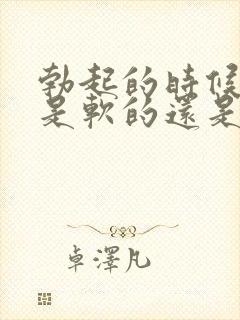 勃起的時候
是軟的還是
卓澤凡